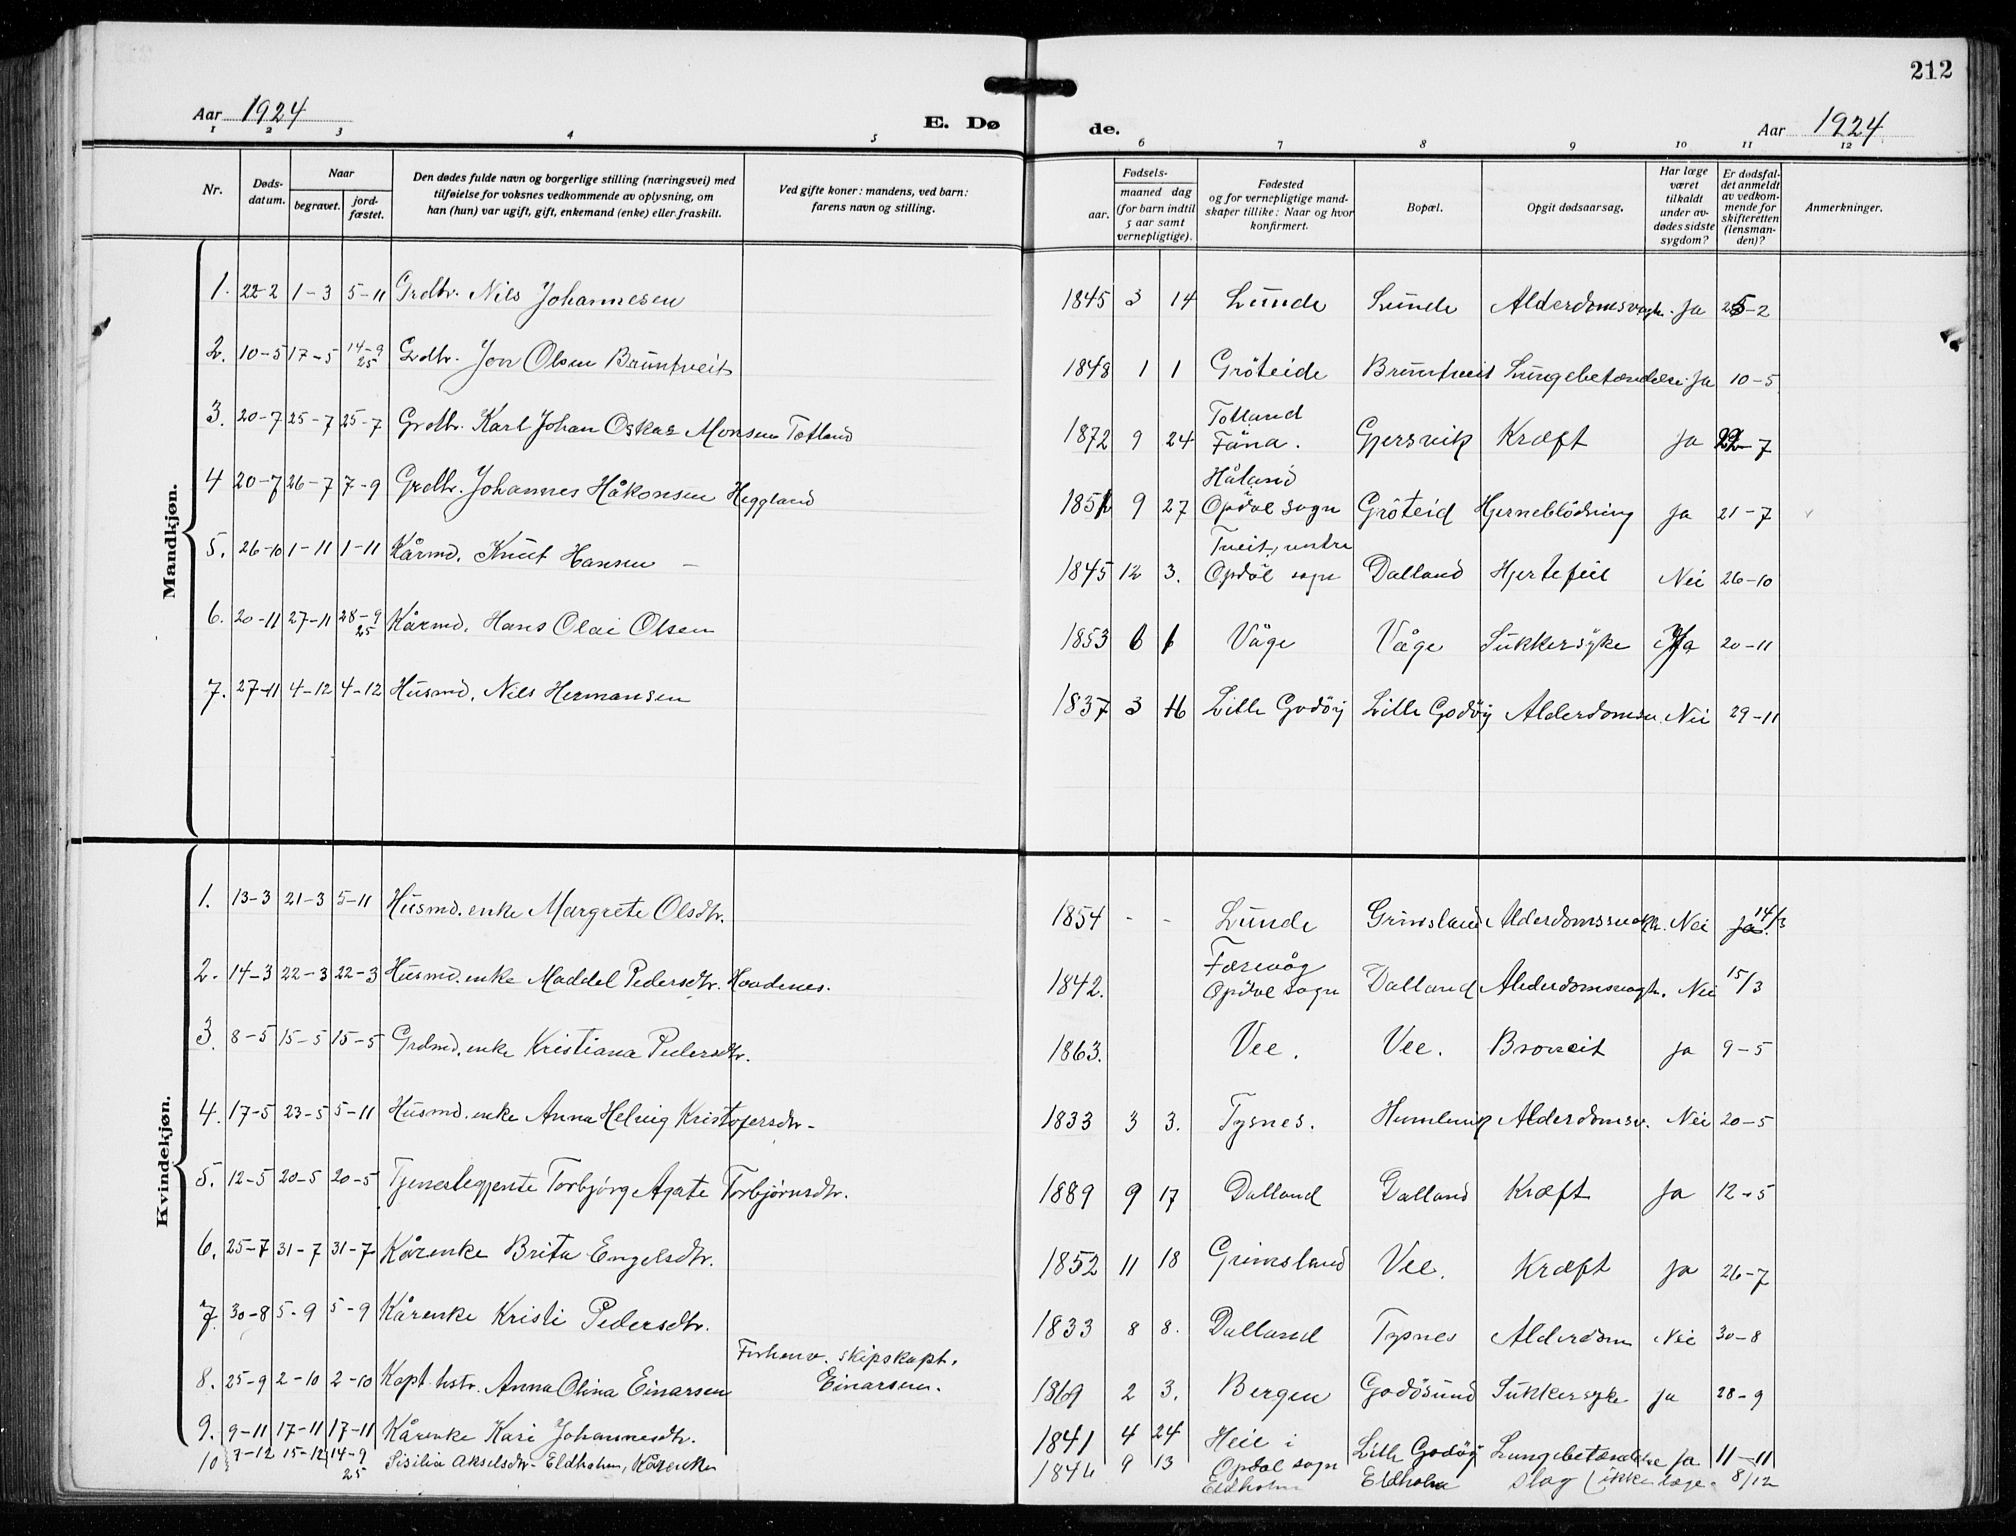 212
Aar 1924
E. Dø
de.
Aar 1924
1 2 3 4 5 6 7 8 9 10 11 12
Nr.
Døds-datum.
Naar
begravet.
jord-fæstet.
Den dødes fulde navn og borgerlige stilling (næringsvei) med
tilføielse for voksnes vedkommende av oplysning, om
han (hun) var ugift, gift, enkemand (enke) eller fraskilt.
Ved gifte koner: mandens, ved barn:
farens navn og stilling.
Fødsels-
aar.
maaned dag
(for barn indtil
5 aar samt
vernepligtige).
Fødested
og for vernepligtige mand-
skaper tillike: Naar og hvor
konfirmert.
Bopæl.
Opgit dødsaarsag.
Har læge
været
tilkaldt
under av-
dødes sidste
sygdom?
Er dødsfal-
det anmeldt
av vedkom-
mende for
skifteretten
(lensman-
den)?
Anmerkninger.
Mandkjøn.
1. 22-2 1-3 5-11 Grdbr. Nils Johannesen 1845 3 14 Lunde Lunde Alderdomsvagh. Ja 25-2
2. 10-5 17-5 14-9 25 Grdbr. Jon Olsen Bruntveit 1848 1 1 Gröteide Bruntveit Lungebetændelse Ja 10-5
3. 20-7 25-7 25-7 Grdbr. Karl Johan Oskar Monsen Totland 1872 9 24 Totland Fåna. Gjersvik Kræft Ja 22-7
4 20-7 26-7 7-9 Grdbr. Johannes Håkonsen Heggland 9 27 Håland Opdal sogn Gröteid Hjerneblödning Ja 21-7
5. 26-10 1-11 1-11 Kårmd. Knut Hansen - 1845 12 3. Tveit, vestre Opdal sogn Dalland Hjertefeil Nei 26-10
6. 20-11 27-11 28-9 25 Kårmd. Hans Olai Olsen 1853 6 Våge Våge Sukkersyke Ja 20-11
7. 27-11 4-12 4-12 Husmd. Nils Hermansen 1837 3 16 Lille Godöy Lille Godöy Alderdomsv. Nei 29-11
Kvindekjøn.
1. 13-3 21-3 5-11 Husmd. enke Margrete Olsdtr. 1854 - - Lunde Grimsland Alderdomssvagh. Nei Ja 14/3
2. 14-3 22-3 22-3 Husmd. enke Maddel Pedersdtr. Hovdenes. 1842. Færevåg Opdal sogn Dalland Alderdomsvagh. Nei 15/3
3. 8-5 15-5 15-5 Grdmd. enke Kristiana Pedersdtr. 1863. Vee. Vee. Ja 9-5
4. 17-5 23-5 5-11 Husmd. enke Anna Helvig Kristofersdtr- 1833 3 3. Tysnes. Humlevik Alderdomsv. Nei 20-5
5. 12-5 20-5 20-5 Tjenestegjente Torbjörg Agate Torbjörnsdtr. 1889 9 17 Dalland Dalland Kræft Ja 12-5
6. 25-7 31-7 31-7 Kårenke Brita Engelsdtr. 1852 11 18 Grimsland Vee. Kræft Ja 26-7
7. 30-8 5-9 5-9 Kårenke Kristi Pedersdtr. 1833 8 8. Dalland Tysnes Alderdom Nei 30-8
8. 25-9 2-10 2-10 Kapt. hstr. Anna Olina Einarsen Forhenv. skipskapt. Einarsen. 1869 2 3. Bergen Godösund Sukkersyke Ja 28-9
9. 9-11 17-11 17-11 Kårenke Kari Johannesdtr. 1841 4 24 Heie i Opdal sogn Lille Godöy Lungebetændelse Ja 11-11
10 7-12 15-12 14-9 25 Sisilia Akselsdtr. Eldholm, Kårenke 1844 9 13 Eldholm Eldholm Slag (ikke læge. 8/12